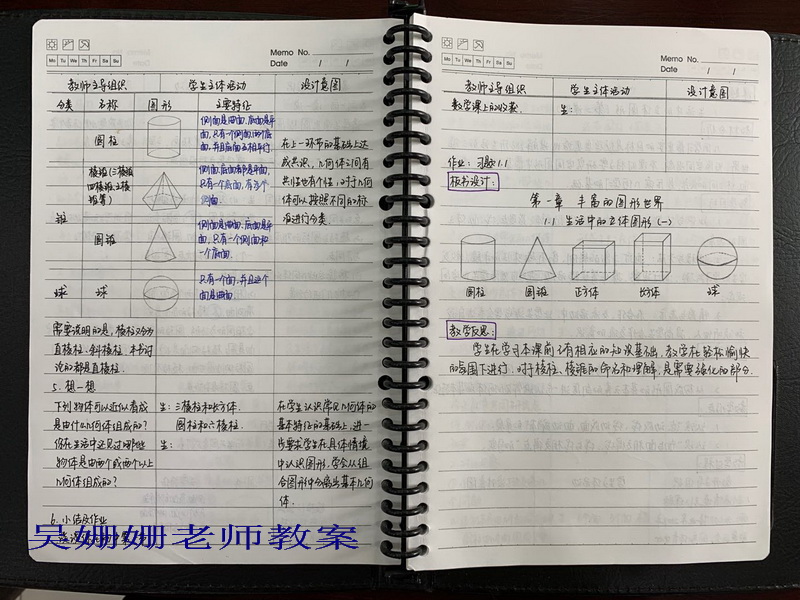 Memo No.
Mo Tu We Th Fr Sa Su
Date / /
教师主导组织 学生主体活动 设计意图
分类 名称 图形 主要特征
圆柱
侧面是曲面,底面是平
面,只有一个侧面,两个底
面,并且底面互相平行.
在上一环节的基础上达
成共识,几何体之间有
共性也有个性,对于几何
体可以按照不同的标
准进行分类.
锥
棱锥(三棱锥
四棱锥、五棱
锥等)
侧面、底面都是平面,
只有一个底面,有多个
侧面.
圆锥
侧面是曲面,底面是平
面,只有一个侧面和
一个底面.
球 球
只有一个面,并且这个
面是曲面.
需要说明的是,棱柱又分为
直棱柱、斜棱柱,本书讨
论的都是直棱柱.
5. 想一想
下列物体可以近似看成
是由什么几何体组成的?
你在生活中还见过哪些
物体是由两个或两个以上
几何体组成的?
生:三棱柱和长方体.
圆柱和六棱柱.
生:
在学生认识常见几何体的
基本特征的基础上,进一
步要求学生在具体情境
中认识图形,学会从组
合图形中分离出基本几何
体.
6. 小结及作业
吴姗姗老师教案
Memo No.
Mo Tu We Th Fr Sa Su
Date / /
教师主导组织 学生主体活动 设计意图
数学课上的收获. 生:
作业:习题1.1
板书设计:
第一章 丰富的图形世界
1.1 生活中的立体图形(一)
圆柱 圆锥 正方体 长方体 球
教学反思:
学生在学习本课前已有相应的知识基础,教学在轻松愉快
的氛围下进行.对于棱柱、棱锥的命名和理解,是需要强化的部分.